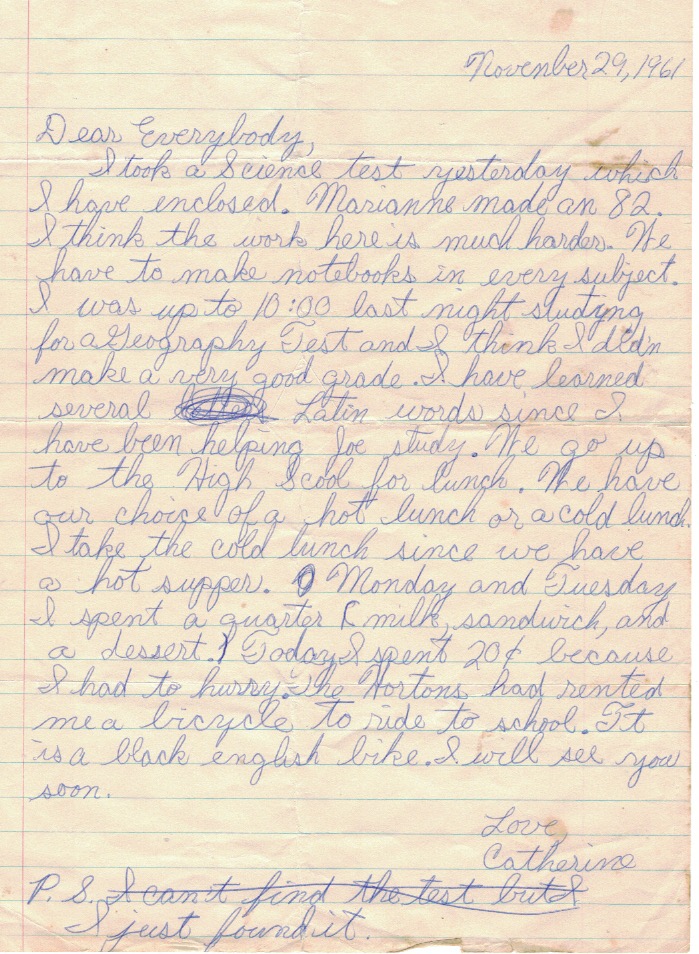 November 29, 1961
Dear Everybody,
I took a Science test yesterday which
I have enclosed. Marianne made an 82.
I think the work here is much harder. We
have to make notebooks in every subject.
I was up to 10:00 last night studying
for a Geography Test and I think I didn
make a very good grade. I have learned
several Latin words since I
have been helping Joe study. We go up
to the High Scool for lunch. We have
our choice of a hot lunch or a cold lunch.
I take the cold lunch since we have
a hot supper. Monday and Tuesday
I spent a quarter (milk, sandwich, and
a dessert.) Today I spent 20¢ because
I had to hurry. The Hortons had rented
me a bicycle to ride to school. It
is a black english bike. I will see you
soon.
Love,
Catherine
P. S. I can't find the test but I
I just found it.